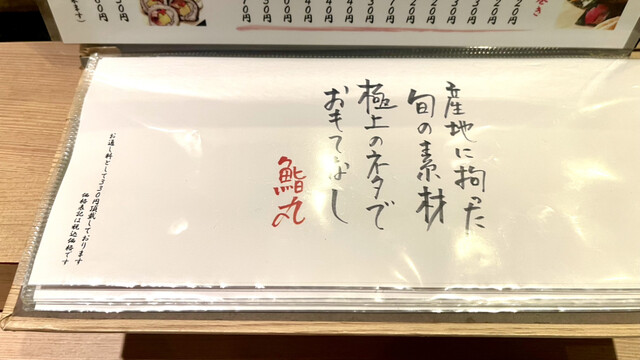 産地に拘った
旬の素材
極上のネタで
おもてなし
鮨丸
お通し料として330円頂戴しております
価格表記は税込価格です